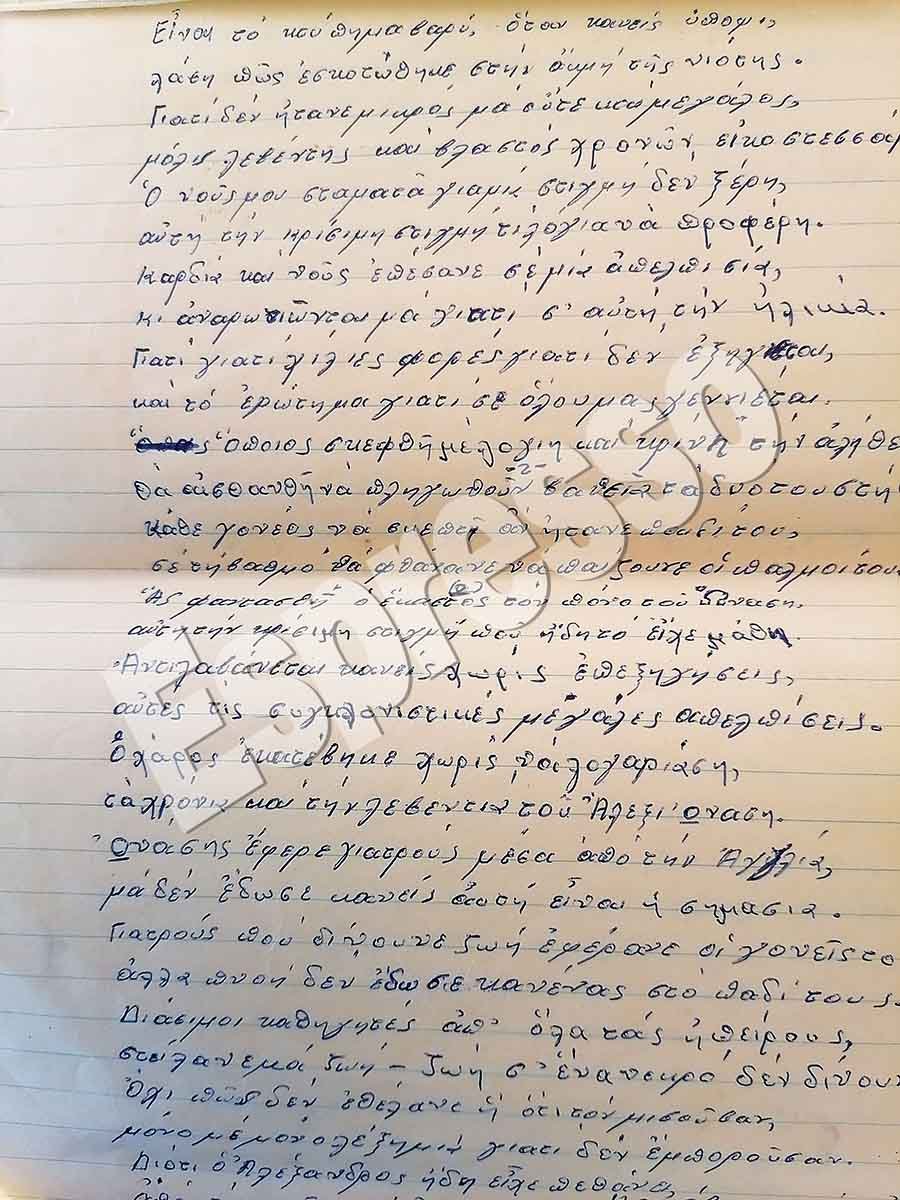 Εἶναι τό κτύπημα βαρύ, ὅταν κανείς ὑποψι,
λάση πῶς ἐσκοτώθηκε στήν ἀκμή τῆς νιότης.
Γιατί δέν ἤτανε μικρός μά οὔτε και μεγάλος,
μόλις λεβέντης και βλαστός χρονῶν εἰκοστεσσάρ
Ὁ νοῦς μου σταματᾶ γιαμιά στιγμή δέν ξέρη,
αὐτή τήν κρίσιμη στιγμή τι λόγια νά προφέρη.
Καρδιά και νοῦς ἐπέσανε σέ μιά ἀπελπισιά,
κι ἀναρωτιῶνται μά γιατι σ' αὐτή τήν ἡλικιά.
Γιατί γιατί χίλιες φορές γιατί δέν ἐξηγιέται,
και τό ἐρώτημα γιατί σέ ὅλους μας γεννιέται.
Ὅποιος σκεφθῆ μέ λογικη και κρίνη τήν ἀλήθε
-2-
Θά αἰσθανθῆ νά πληγωποῦν βαθειά τά δυο του στή
κάθε γονέος νά σκεπτῆ ἄν ἤτανε παιδί του,
σέ τι βαθμό θά φθάνανε νά παίζουνε οἱ παλμοί του
Ἄς φαντασθῆ ὁ ἕκαστος τόν πόνο τοῦ Ὠνάση,
αὐτή τήν κρίσιμη στιγμή πού ἤδη τό εἶχε μάθη.
Ἀντιλαβάνεται κανείς χωρίς ἐπεξηγήσεις,
αὐτές τίς συγκλονιστικές μεγάλες απελπίσεις.
Ὁ χάρος ἐκατέβηκε χωρίς νά λογαριάση,
τά χρόνια και τήν λεβεντιά τοῦ Ἀλεξί Ὀναση.
Ὀνάσης ἔφερε γιατρούς μέσα ἀπό τήν Ἀγγλία,
μά δέν ἔδωσε κανείς αὐτή εἶναι ἡ σημασια.
Γιατρούς πού δίνουνε ζωή ἐφέρανε οἱ γονεῖς το
ἀλλα πνοή δεν ἔδωσε κανένας στό παδί τους.
Διάσιμοι καθηγητές ἀπ' ὅλα τάς ἠπείρους,
στείλανε μά ζωή - ζωή σ' ἕνα νεκρό δέν δίνουν
Ὄχι πῶς δέν ἐθέλανε ἤ ὅτι τόν μισοῦσαν,
μόνο μέ μόνο λέξη μιά γιατι δέν ἔμποροῦσαν.
Διότι ὁ Ἀλέξανδρος ἤδη εἶχε πεθάνει,
Espresso